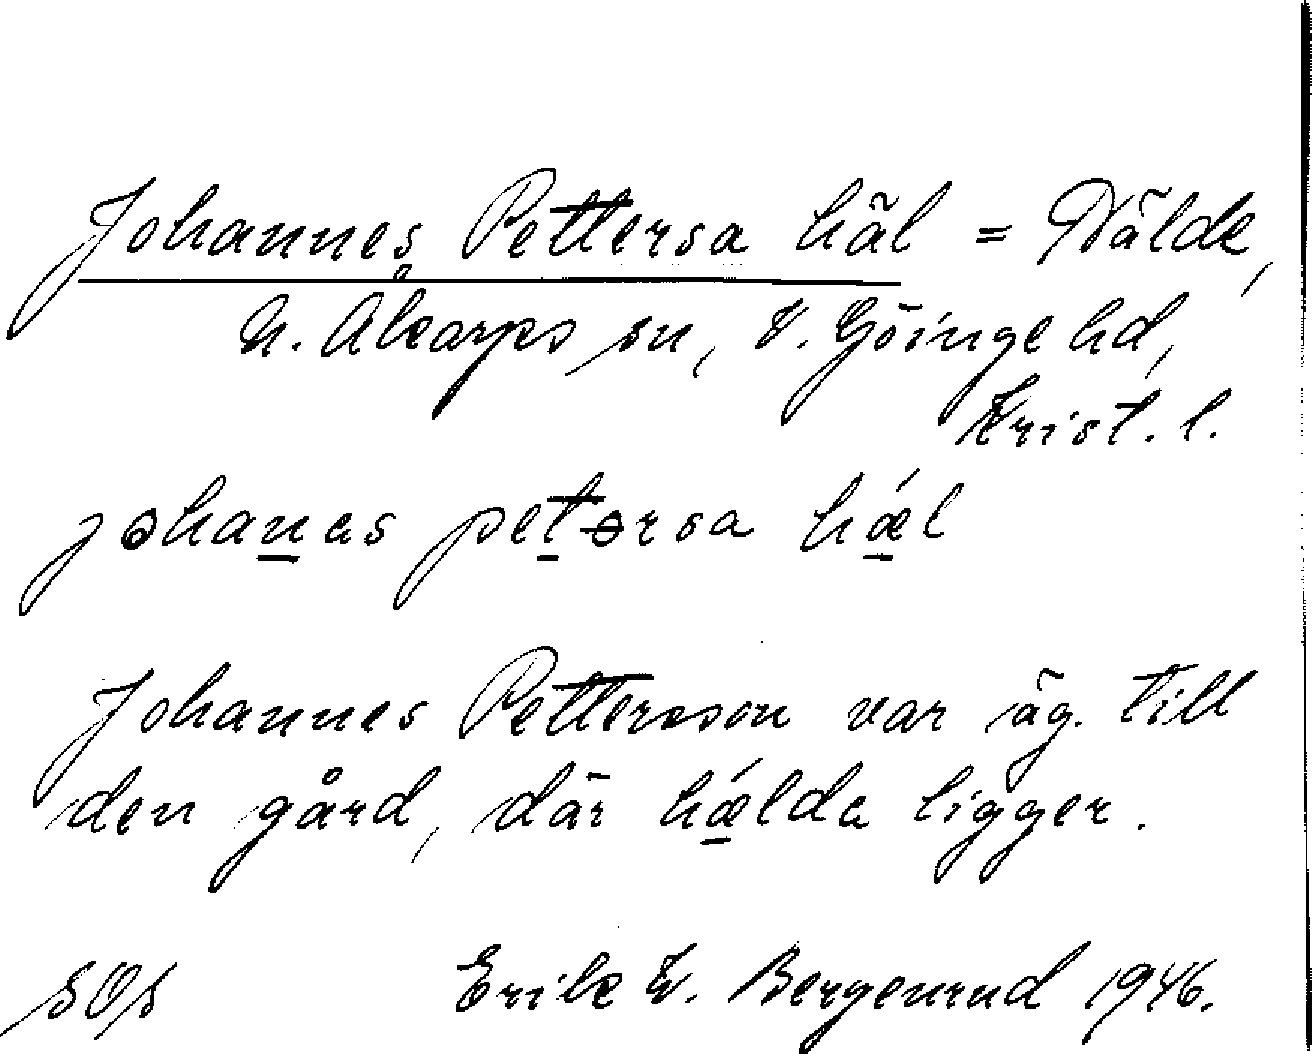 Johannes Pettersa häl = Hälde,
N. Åkarps sn, V. Göinge hd,
Krist. l.
johanas petərsa hǽ̱l
Johannes Pettersson var äg. till
den gård, där hǽ̱lda ligger.
Erik W. Bergenrud 1946.